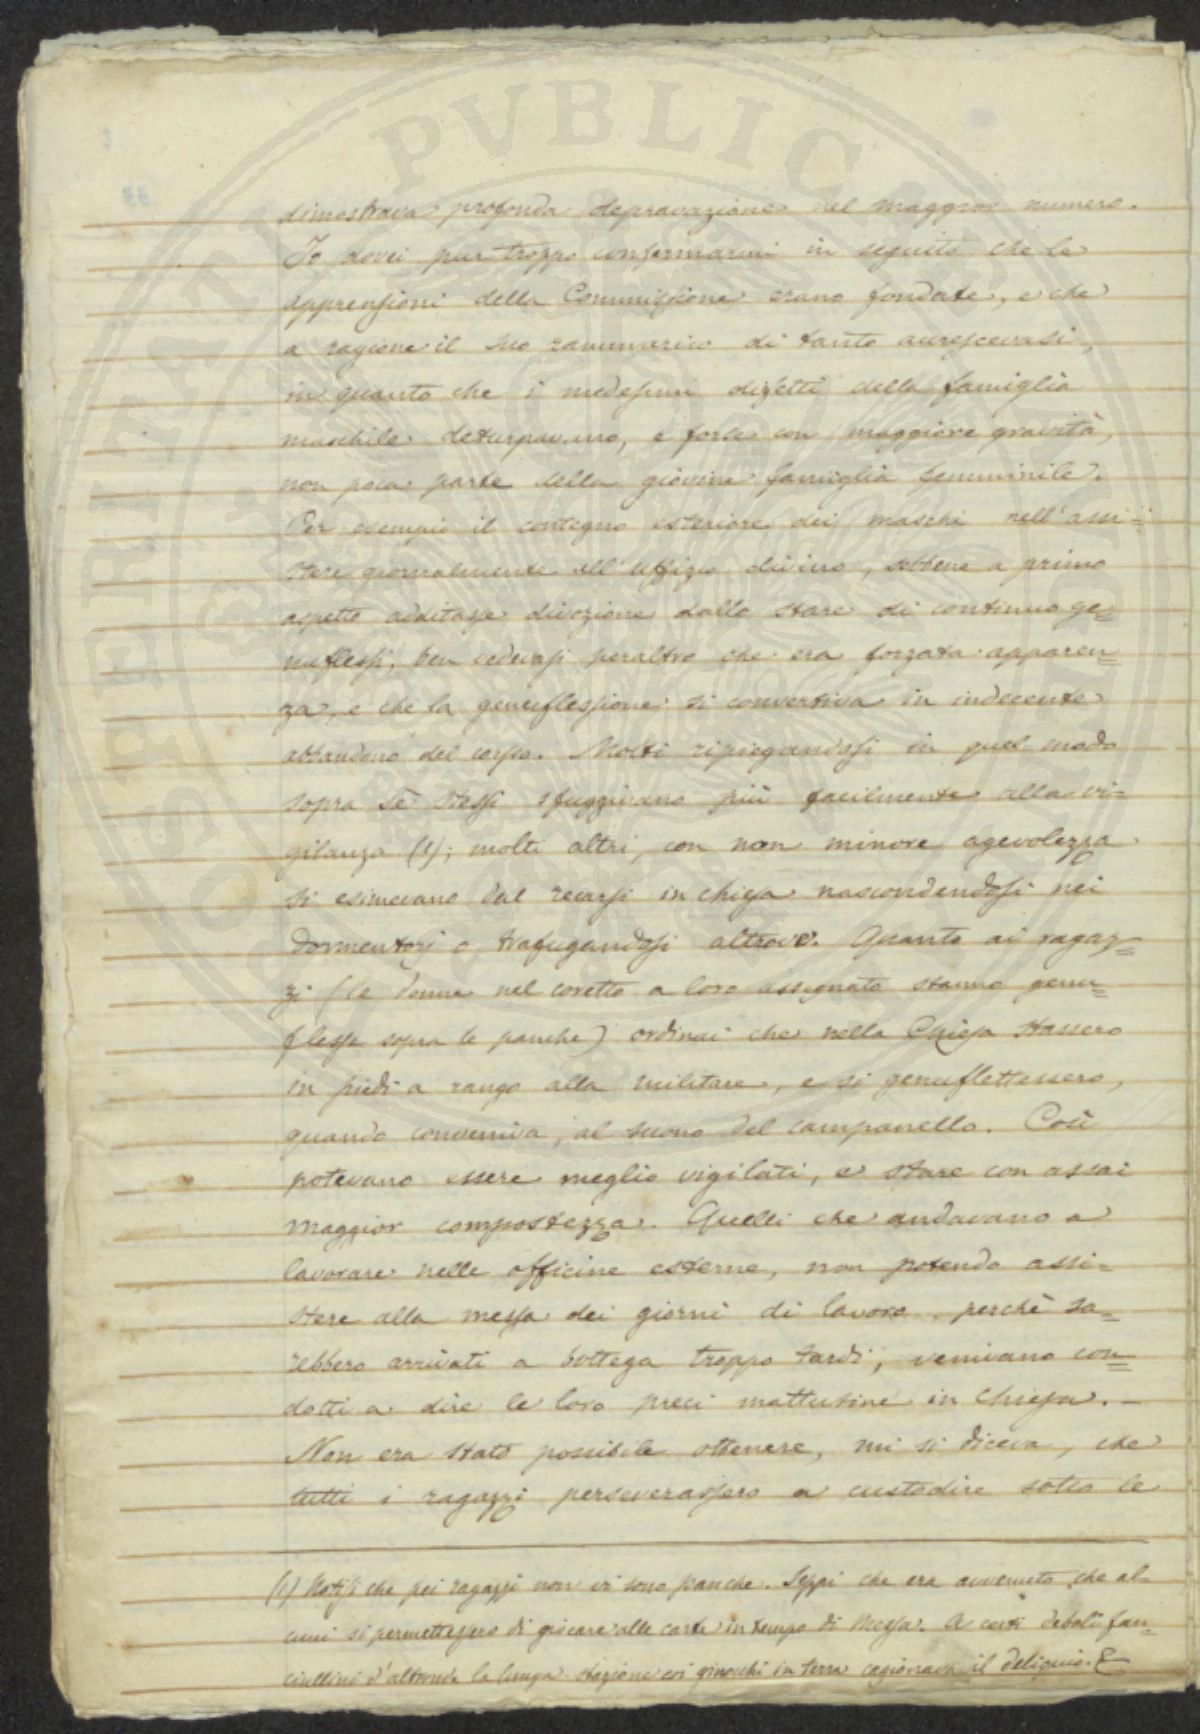 dimostrava profonda depravazione nel maggior numero.
Io dovei pur troppo confermarmi in seguito che le
apprensioni della Commissione erano fondate, e che
a ragione il suo rammarico di tanto accrescevasi,
in quanto che i medesimi difetti della famiglia
maschile deturpavano, e forse con maggiore gravità,
non poca parte della giovine famiglia femminile.
Per esempio il contegno esteriore dei maschi nell'assi=
stere giornalmente all'uffizio divino, sebbene a primo
aspetto additasse divozione dallo stare di continuo ge=
nuflessi, ben vedevasi peraltro che era forzata apparen=
za, e che la genuflessione si convertiva in indecente
abbandono del corpo. Molti ripiegandosi in quel modo
sopra sè stessi sfuggivano più facilmente alla vi=
gilanza (1); molti altri, con non minore agevolezza
si esimevano dal recarsi in chiesa nascondendosi nei
dormentorj o trafugandosi altrove. Quanto ai ragaz=
zi (le donne nel coretto a loro assegnato stanno genu=
flesse sopra le panche) ordinai che nella Chiesa stassero
in piedi a rango alla militare, e si genuflettessero,
quando conveniva, al suono del campanello. Così
potevano essere meglio vigilati, e stare con assai
maggior compostezza. Quelli che andavano a
lavorare nelle officine esterne, non potendo assi=
stere alla messa dei giorni di lavoro, perchè sa=
rebbero arrivati a bottega troppo tardi, venivano con=
dotti a dire le loro preci mattutine in Chiesa. –
Non era stato possibile ottenere, mi si diceva, che
tutti i ragazzi perseverassero a custodire sotto le
(1) Notisi che pei ragazzi non vi sono panche. Seppi che era avvenuto che al-
cuni si permettessero di giocare alle carte in tempo di Messa. A certi deboli fan=
ciullini d'altronde la lunga stazione coi ginocchi in terra cagionava il deliquio.
PVBLICAE
PROSPERITATI